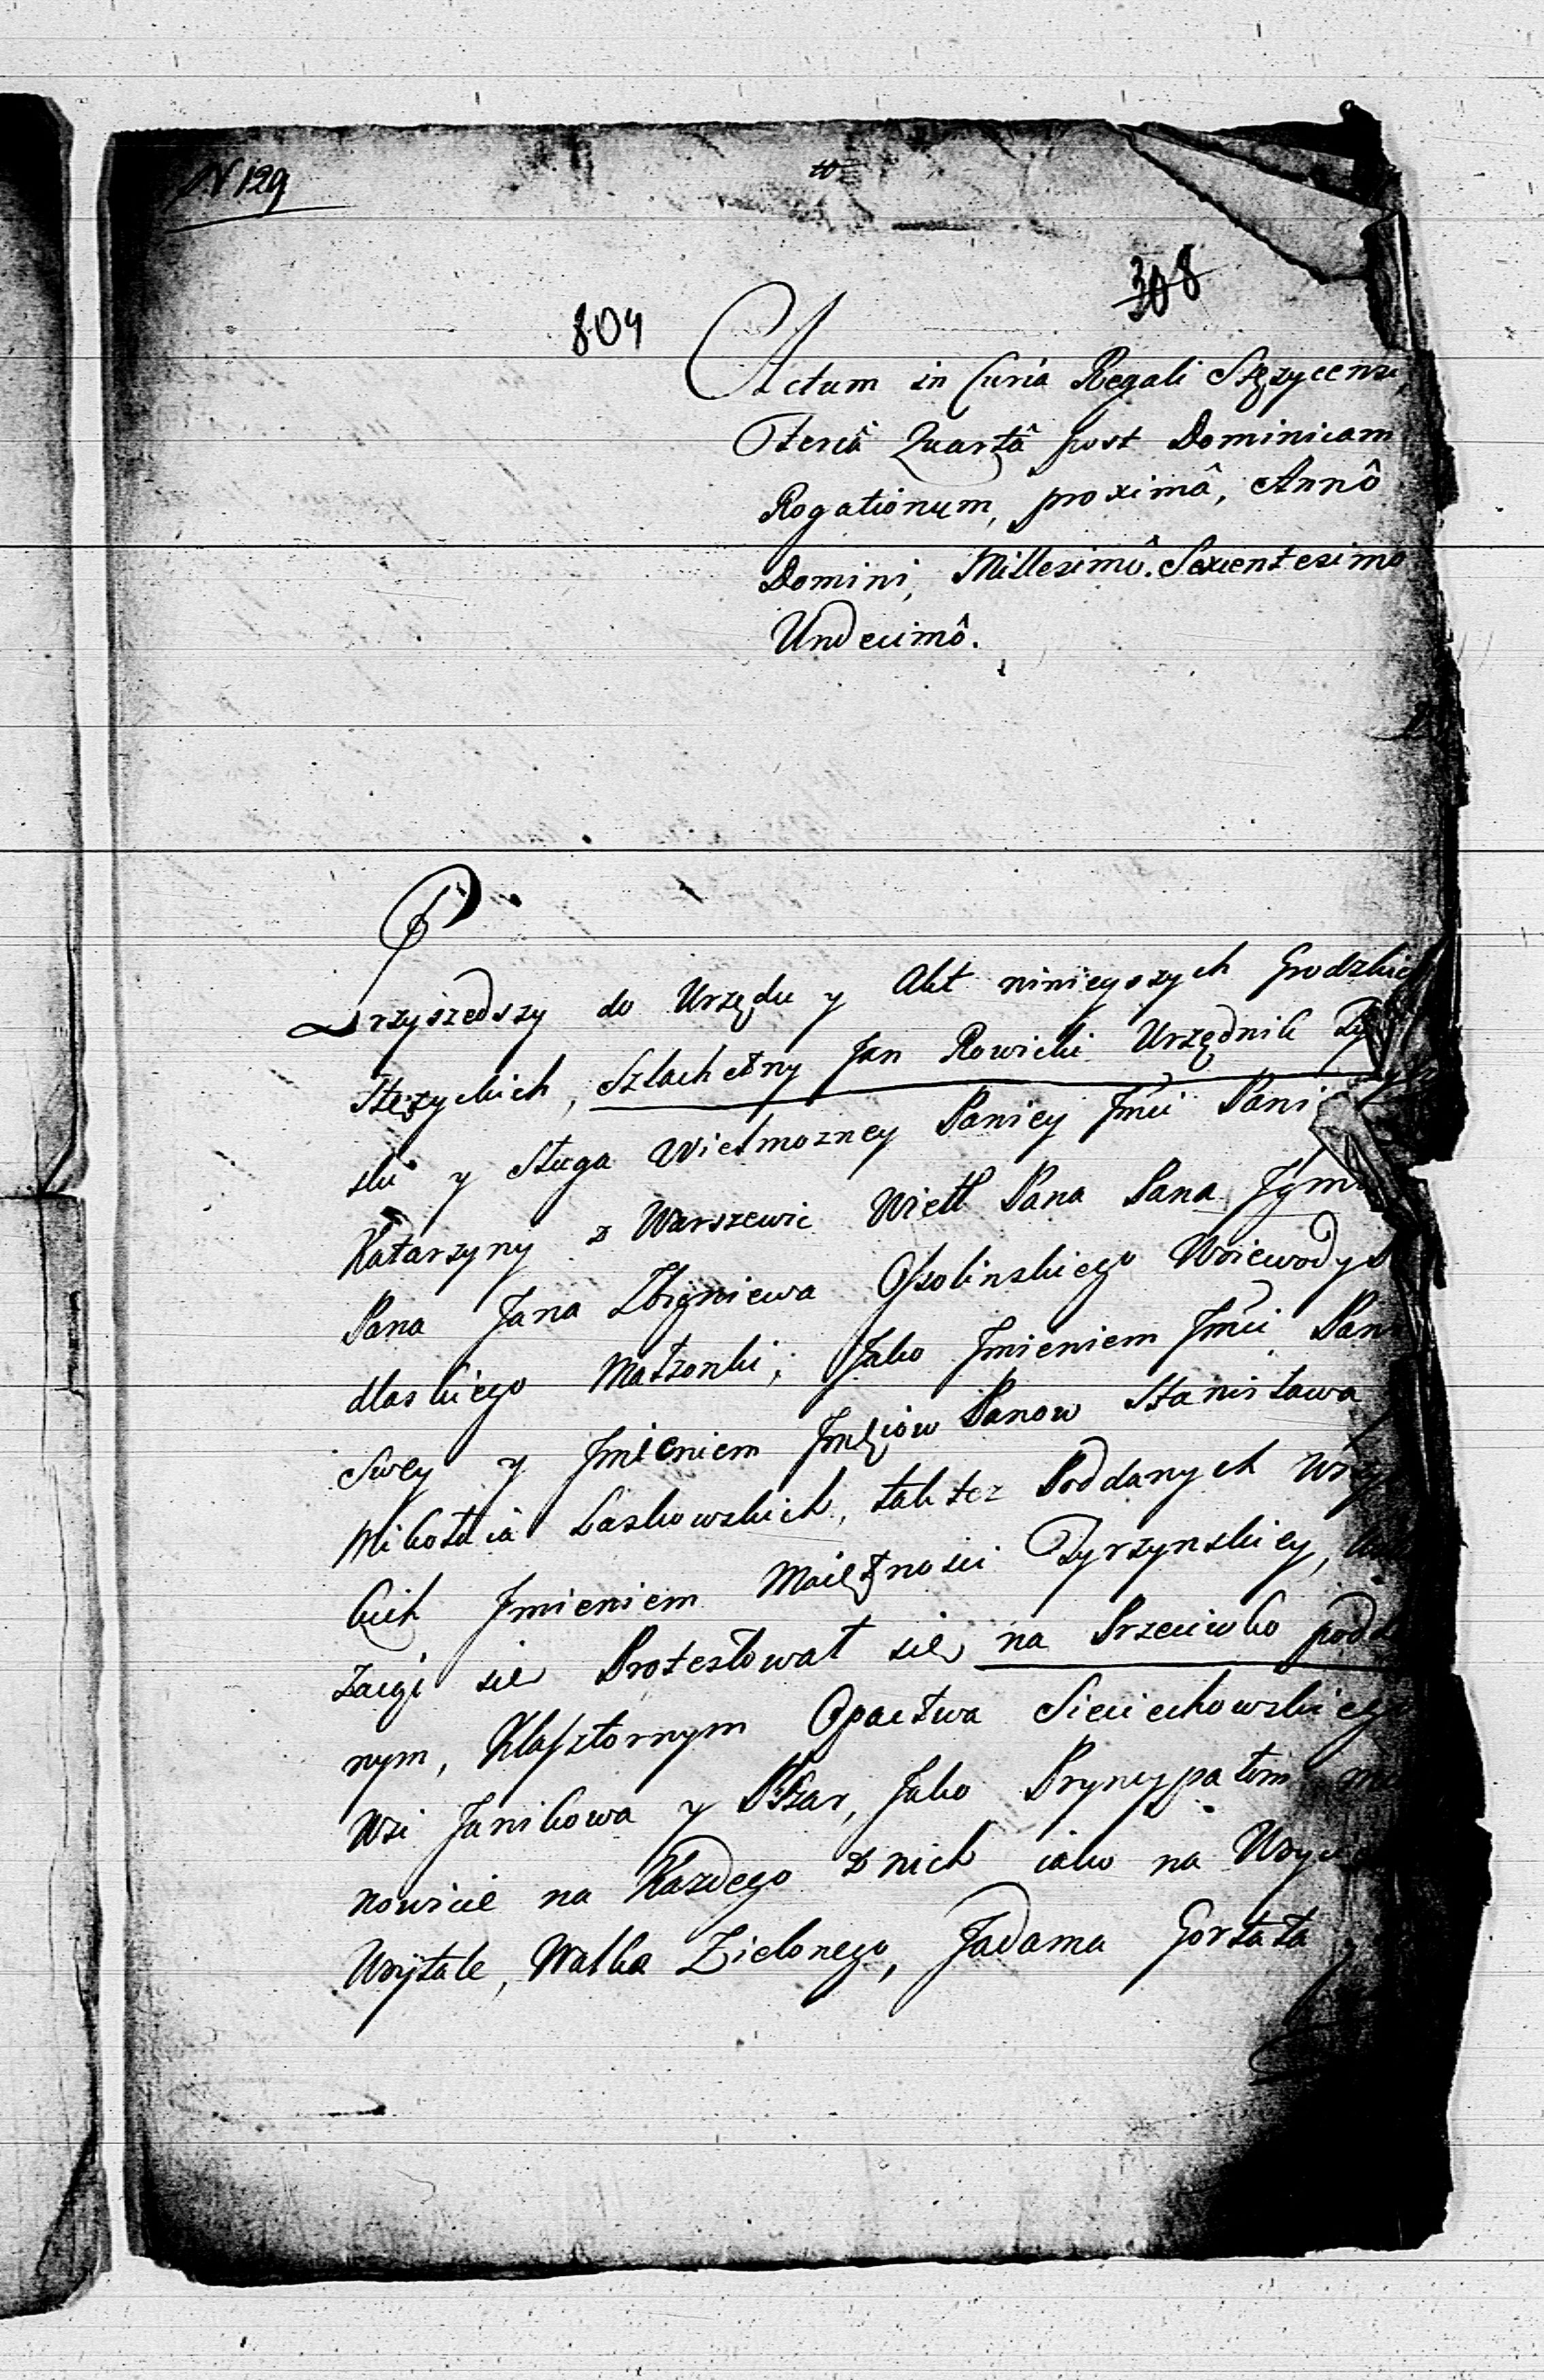 N 129
308
804
Actum in Curia Regali Stężycensi,
Feriâ Quartâ post Dominicam
Rogationum, proximâ, Annô
Domini, Millesimô. Sexcentesimo
Undecimô.
Przyszedszy do Urzędu y Akt ninieyszych Grodzkich
Stężyckich, Szlachetny Jan Rowicki Urzędnik
ski y sługa Wielmozney Paniey Jmci Pani
Katarzyny z Warszewic Wiel Pana Pana Jgm
Pana Jana Zbigniewa Ossolinskiego Woiewody
dlaskiego Małzonki; Jako Jmieniem Jmci Pani
Swey y Jmieniem Jmciow Panow Stanisława
Mikołaia Laskowskich, takter Poddanych Wszy
kich Jmieniem Maiętnosci Tyrzynskiey,
zaiąc sie Protestował sie na Przeciwko podda
nym, Klasztornym Opactwa Sieciechowskiego
Wsi Janikowa y Psar, Jako Pryncypałom mia
nowicie na Kazdego z nich iako na
Woytale, Walka Zielonego, Jadama Gortata